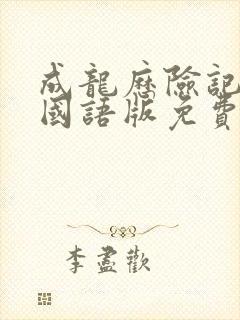 成龍歷險記
國語版免費
李盡歡